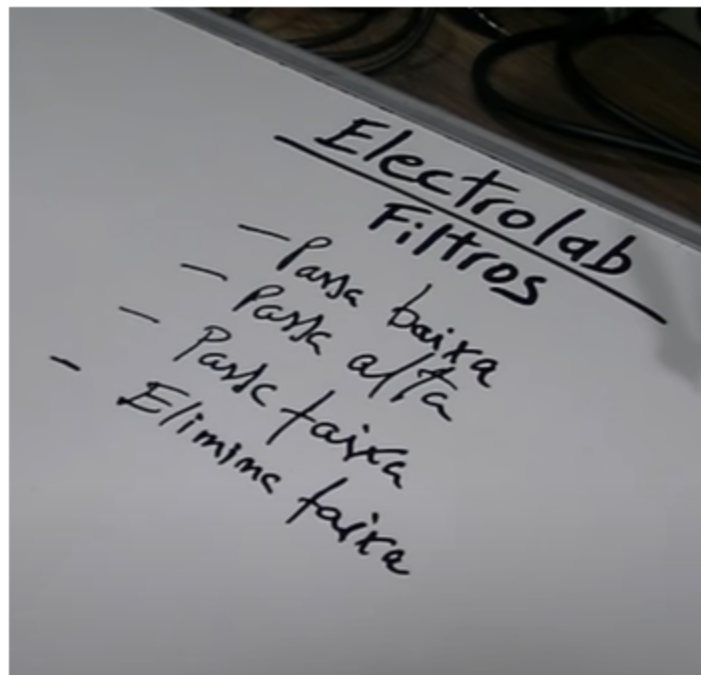 Electrolab
Filtros
- Passa baixa
- Passa alta
- Passa faixa
- Elimina faixa